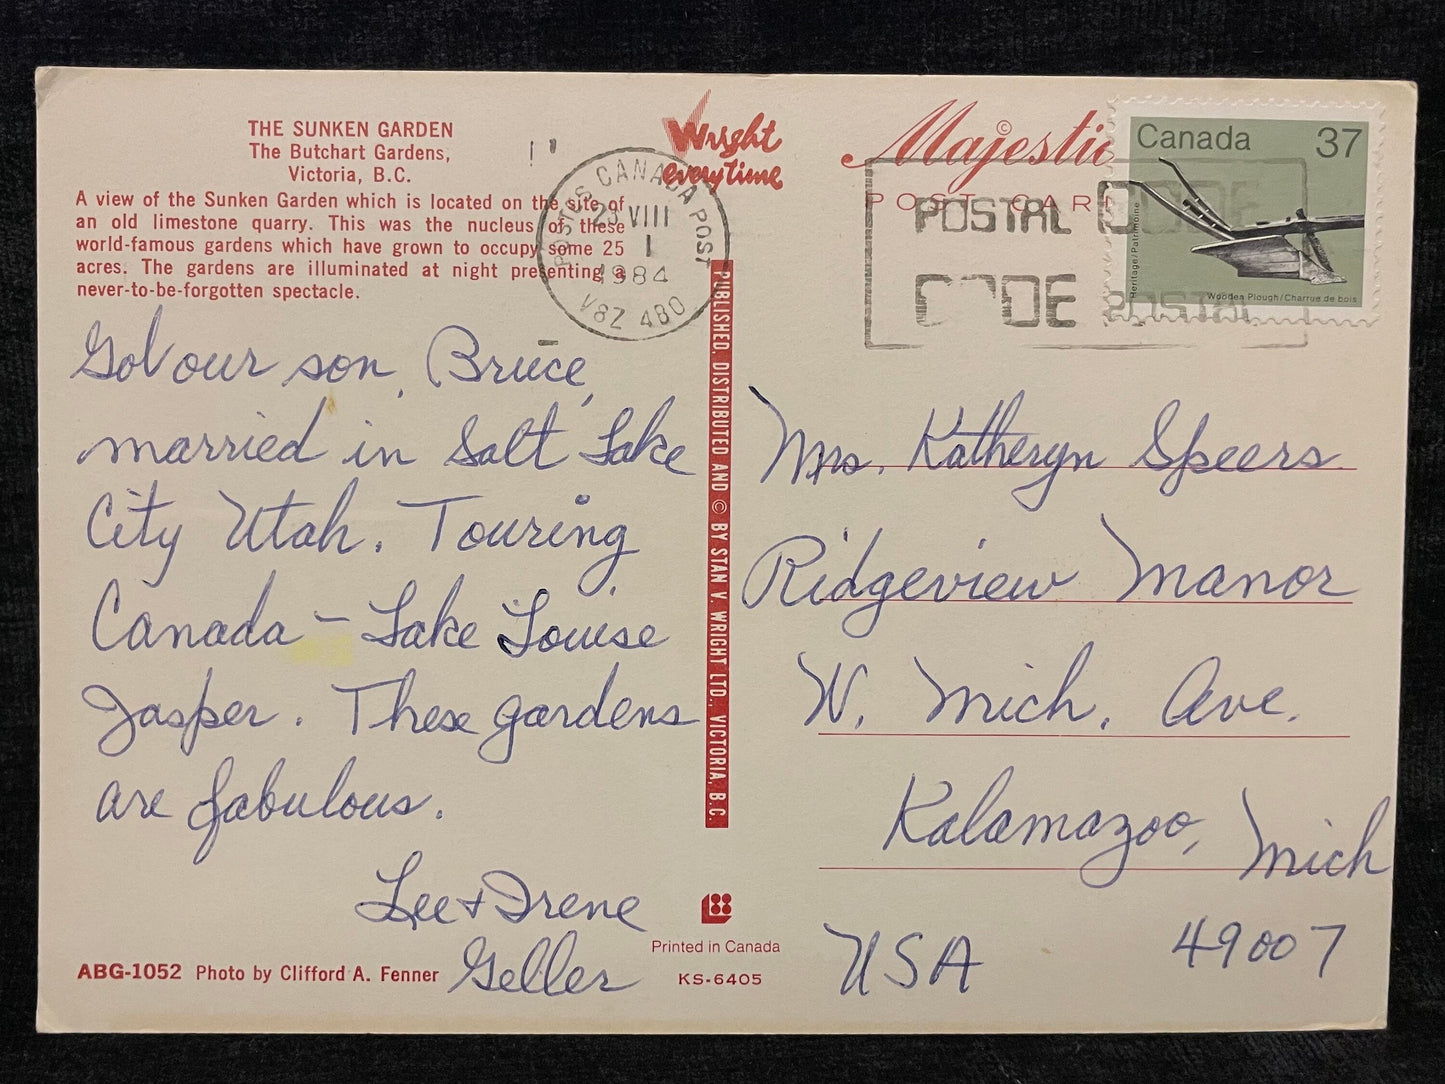 THE SUNKEN GARDEN
The Butchart Gardens,
Victoria, B.C.
A view of the Sunken Garden which is located on the site of
an old limestone quarry. This was the nucleus of these
world-famous gardens which have grown to occupy some 25
acres. The gardens are illuminated at night presenting a
never-to-be-forgotten spectacle.
Got our son, Bruce,
married in Salt Lake
City Utah. Touring
Canada – Lake Louise
Jasper. These gardens
are fabulous.
Lee & Irene
Geller
ABG-1052 Photo by Clifford A. Fenner
Wright
everytime
POSTES CANADA POST
29 VIII
1
1984
V8Z 4B0
PUBLISHED, DISTRIBUTED AND © BY STAN V. WRIGHT LTD., VICTORIA, B.C.
Printed in Canada
KS-6405
Majestic ©
POST CARD
POSTAL CODE
CODE POSTAL
Canada 37
Heritage/Patrimoine
Wooden Plough/Charrue de bois
Mrs. Katheryn Speers
Ridgeview Manor
W. Mich. Ave.
Kalamazoo, Mich
USA 49007